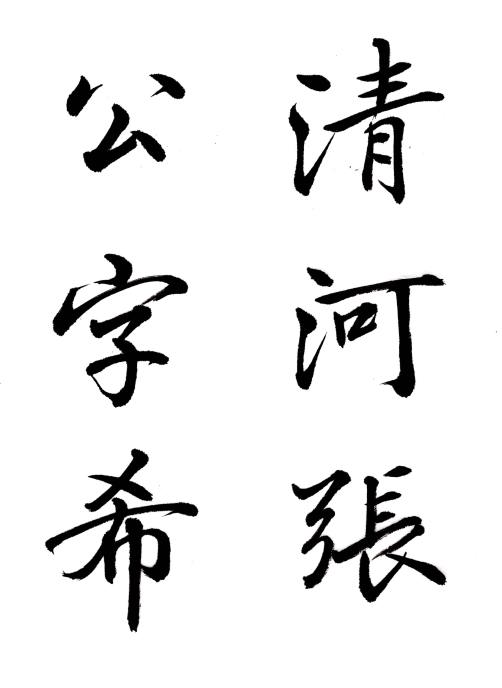 清河張
公字希